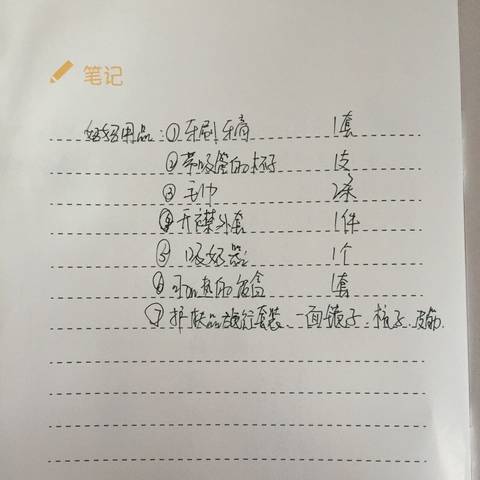 笔记
妈妈用品:①牙刷牙膏 1套
②带吸管的杯子 1支
③毛巾 2条
④开襟外套 1件
⑤吸奶器 1个
⑥可加热的饭盒 1套
⑦护肤品旅行套装、一面镜子、梳子、皮筋